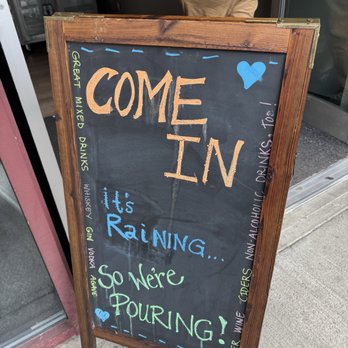 COME
IN
It's
RaiNING...
So We're
POURING!
GREAT MIXED DRINKS
WHISKEY GIN VODKA AGAVE
WINE CIDERS NON-ALCOHOLIC DRINKS, Too!